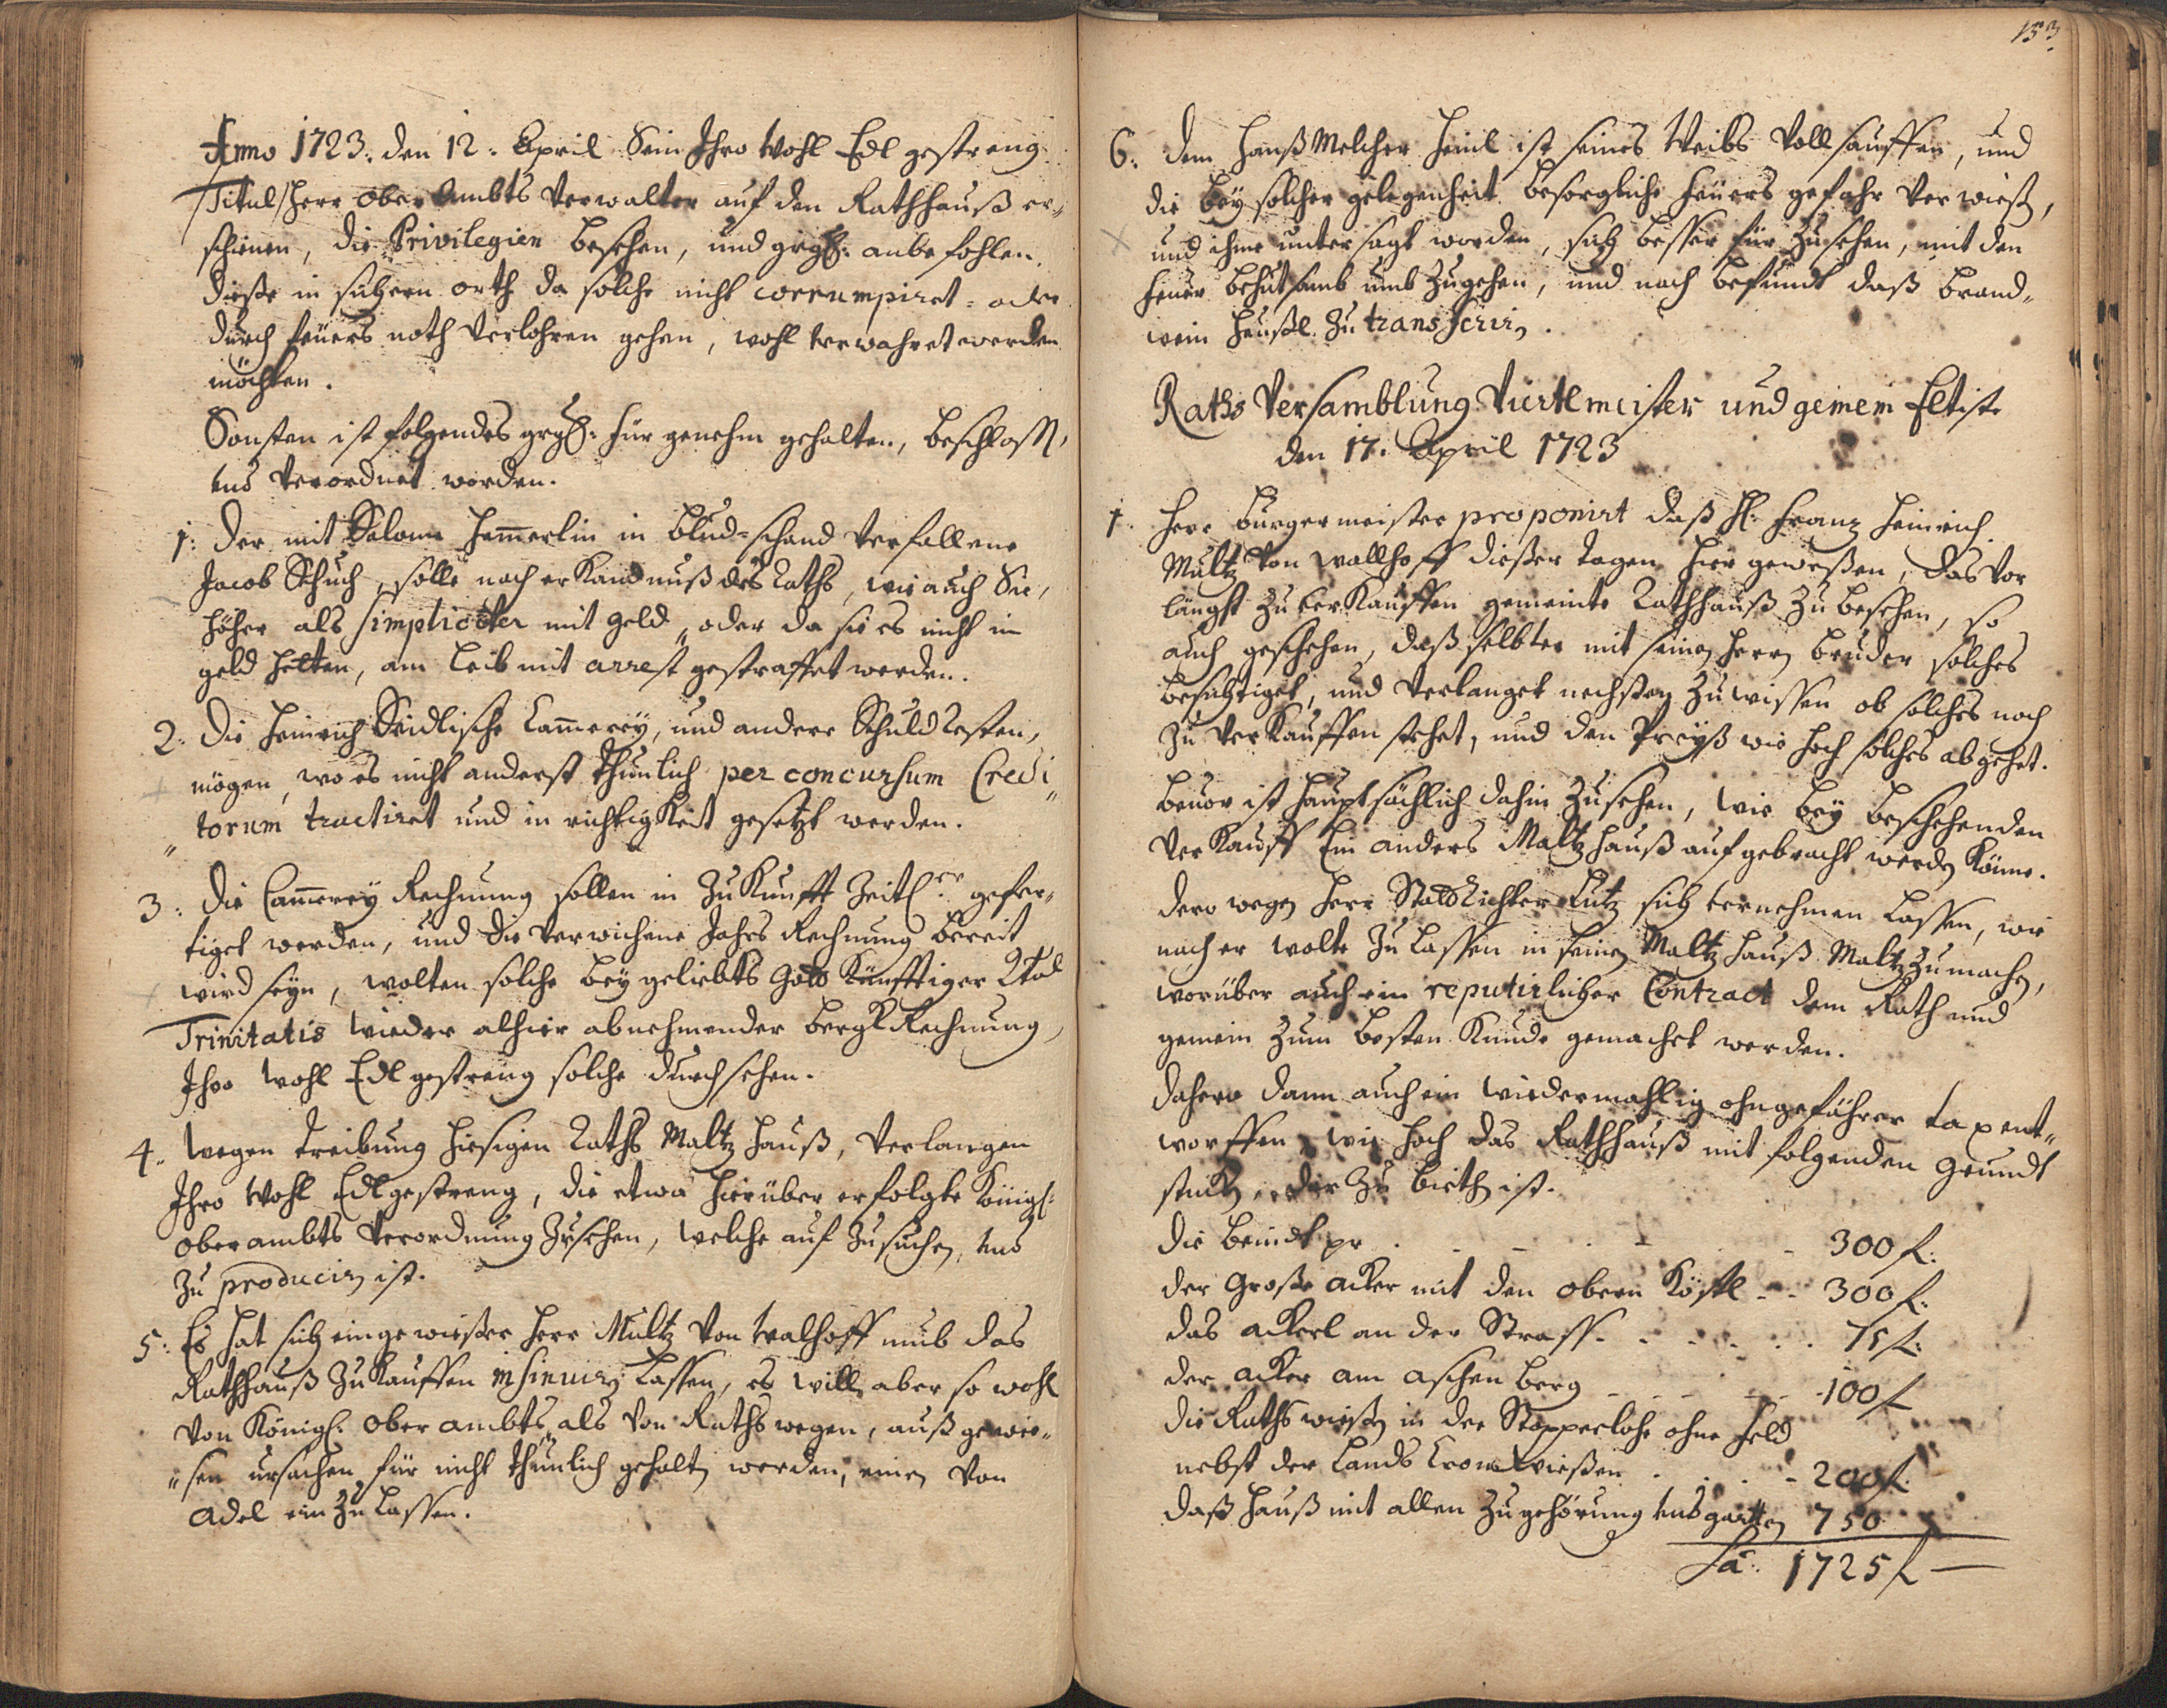 Anno 1723. den 12. April Sein Ihro Wohl Edl gestreng
Titul Herr Ober Ambts Verwalter auf den Rathhauß er„
schienen, die Privilegien besehen, und anbefohlen,
dieße in sichern orth da solche nicht corrumpiret= oder
durch feüers noth Verlohren gehen, wohl verwahret werden
möchten.
Sonsten ist folgendes für genehm gehalten, beschloss,
und Verordnet worden.
1: Der mit Salome Hem̄erlin in blud=schand Verfallene
Jacob Schuch, solle nach erkandnuß des Raths, wie auch Sie,
höher als simpliciter mit geld, oder da sie es nicht im
geld hetten, am leib mit arrest gestraffet werden.
2: Die Heinrich Seidlische Cam̄erey, und andere Schuld Resten,
mögen, wo es nicht anderst thunlich per concursum Credi„
„torum tractiret und in richtigkeit gesetzt werden.
3: Die Cam̄erey Rechnung sollen in Zukunfft Zeitl: gefer„
tiget werden, und die Verwichene Jahrs Rechnung bereit
wird seyn, wolten solche bey geliebts Gott künfftiger
Trinitatis wieder alhier abnehmender bergk Rechnung,
Ihro Wohl Edl gestreng solche durchsehen.
4. Wegen treibung hiesigen Raths Maltz Hauß, Verlangen
Ihro Wohl Edlgestreng, die etwa hierüber erfolgte Königl:
oberambts Verordnung Zusehen, welche auf Zusuchen, und
Zu produciren ist.
5: Es hat sich eingewießer Herr Multz Von Walhoff umb das
Rathhauß Zu kauffen insinuiren lassen, es will aber so wohl
Von Königl: Ober ambts, als Von Raths wegen, auß gewie„
„sen ursachen für nicht thunlich gehalten werden, einen Von
Adel ein Zu lassen.
153.
6: Dem Hanß Melcher Heinl ist seines Weibs Vollsauffen, und
die bey solcher gelegenheit besorgliche feüers gefahr Verwießen,
und ihme untersagt worden, sich besser für Zusehen, mit den
feüer behutsamb umb Zugehen, und nach befundt daß brand„
wein Heußl Zu transferiren.
Raths Versamblung Viertlmeister und gemein Eltiste
den 17. April 1723
1. Herr burgermeister proponirt daß H: Franz Heinrich
Multz Von Wallhoff dießer tagen hier geweßen, das Vor
längst Zu verkauffen gemeinte Rathhauß Zu besehen, so
auch geschehen, daß selbter mit seinen Herrn bruder solches
besichtiget, und Verlanget nechstens Zu wissen ob solches noch
Zu Verkauffen stehet, und den Preyß wie hoch solches abgehet.
beuor ist hauptsächlich dahin Zusehen, wie bey beschehenden
Verkauff Ein anders Maltzhauß auf gebracht werden könne.
Dero wegen Herr Stadt Richter Lutz sich vernehmen lassen, wie
nach er wolte Zu lassen in seinen Maltzhauß Maltz Zumachen,
worüber auch ein reputirlicher Contract dem Rath und
gemein Zum besten Kunde gemachet werden.
Dahero dann auch ein wiedermahlig ohngefährer tax ent„
worffen, wie hoch das Rathhauß mit folgenden Grundt
stucken, Zu bieth ist.
Die beindt pr . . . . . 300 f.
der Große acker mit den obern Köstl - - 300 f.
das ackerl an der Strass . . . . . 75 f.
der acker am aschen berg . . . . . 100 f
die Rathswießen in der Stopperlohe ohne feld
nebst der Lands wießen . . . . 200 f.
daß Hauß mit allen Zugehörung und garten 750
Sa: 1725 f —